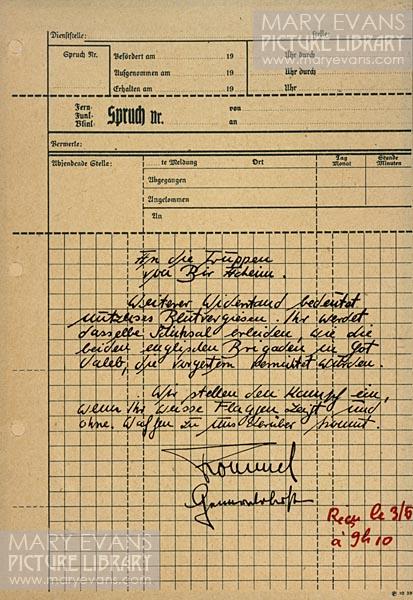 MARY EVANS
PICTURE LIBRARY
www.maryevans.com
Dienststelle: Stelle:
Spruch Nr. Befördert am 19 Uhr durch
Aufgenommen am 19 Uhr durch
Erhalten am 19 Uhr
Fern-
Funk-
Blink- Spruch Nr. von
an
Vermerke:
Absendende Stelle: ....te Meldung Ort Tag Monat Stunde Minuten
Abgegangen
Angekommen
An
An die Truppen
von Bir Acheim.
Weiterer Widerstand bedeutet
nutzloses Blutvergiesen. Ihr werdet
dasselbe Schicksal erleiden, wie die
beiden englischen Brigaden in Got
Ualeb, die vorgestern vernichtet wurden.
Wir stellen den Kampf ein,
wenn Ihr weisse Flaggen zeigt und
ohne Waffen zu uns herüber kommt.
Rommel
Generaloberst
Reçu le 3/6
à 9h10
MARY EVANS
PICTURE LIBRARY
www.maryevans.com
MARY EVANS
PICTURE LIBRARY
www.maryevans.com